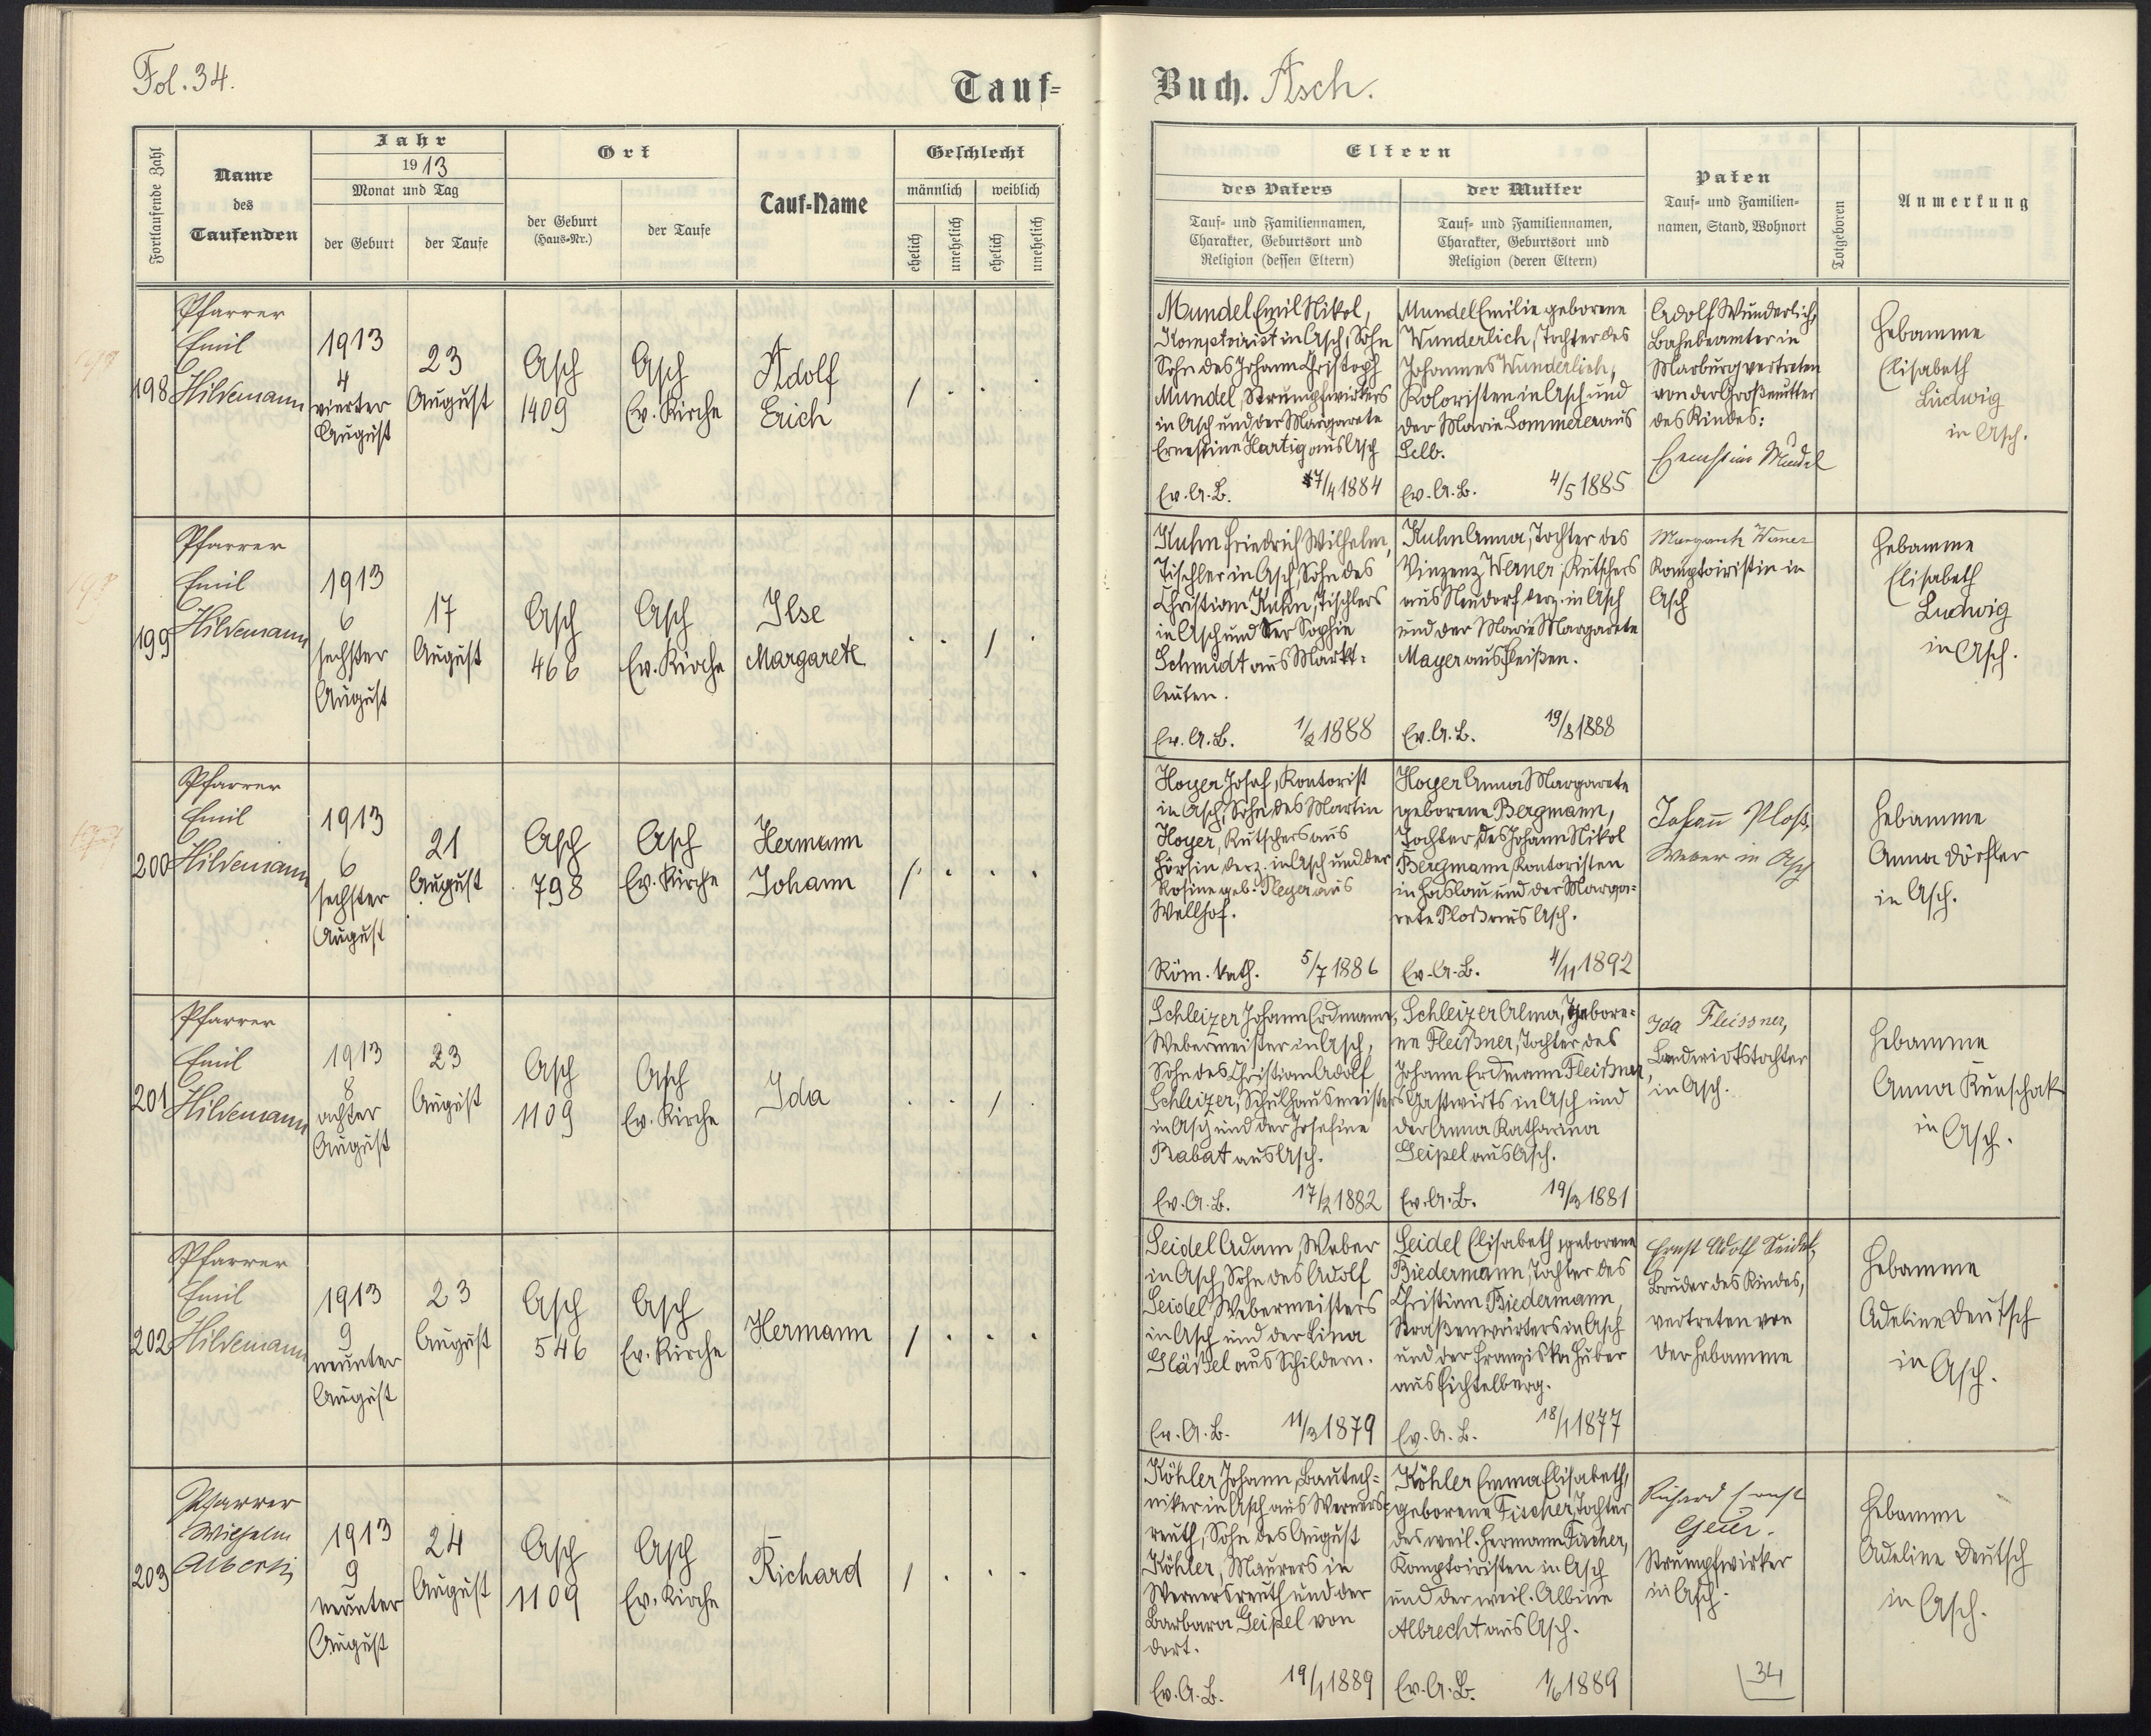 Fol. 34.
Tauf=
Buch. Asch.
Fortlaufende Zahl
Name
des
Taufenden
Jahr
1913
Monat und Tag
der Geburt
der Taufe
Ort
der Geburt
(Haus-Nr.)
der Taufe
Tauf-Name
Geschlecht
männlich
weiblich
ehelich
unehelich
ehelich
unehelich
Eltern
des Vaters
Tauf- und Familiennamen,
Charakter, Geburtsort und
Religion (dessen Eltern)
der Mutter
Tauf- und Familiennamen,
Charakter, Geburtsort und
Religion (deren Eltern)
Paten
Tauf- und Familien-
namen, Stand, Wohnort
Totgeboren
Anmerkung
198
Pfarrer
Emil
Hildemann
1913
4
vierter
August
23
August
Asch
1409
Asch
Ev. Kirche
Adolf
Erich
Mundel Emil Nikol,
Komptoirist in Asch, Sohn
Sohn des Johann Christoph
Mundel, Strumpfwirkers
in Asch und der Margarete
Ernestine Hartig aus Asch
Ev. A. B.
17/4 1884
Mundel Emilie geborene
Wunderlich, Tochter des
Johannes Wunderlich,
Koloristen in Asch und
der Marie Sommerer aus
Selb.
Ev. A. B. 4/5 1885
Adolf Wunderlich,
Bahnbeamter in
Marburg vertreten
von der Großmutter
des Kindes:
Ernestine Mundel
Hebamme
Elisabeth
Ludwig
in Asch.
199
Pfarrer
Emil
Hildemann
1913
6
sechster
August
17
August
Asch
466
Asch
Ev. Kirche
Ilse
Margarete
Kuhn Friedrich Wilhelm,
Tischler in Asch, Sohn des
Christian Kuhn, Tischlers
in Asch und der Sophie
Schmidt aus Markt-
leuten.
Ev. A. B. 1/2 1888
Kuhn Anna, Tochter des
Vinzenz Werner, Kutschers
aus Neudorf derz. in Asch
und der Marie Margarete
Mayer aus Pleißen.
Ev. A. B. 19/8 1888
Margarete Werner
Komptoiristin in
Asch
Hebamme
Elisabeth
Ludwig
in Asch.
200
Pfarrer
Emil
Hildemann
1913
6
sechster
August
21
August
Asch
798
Asch
Ev. Kirche
Hermann
Johann
Hoyer Josef, Kontorist
in Asch, Sohn des Martin
Hoyer, Kutschers aus
Hörsin derz. in Asch und der
Rosine geb. aus
Wellhof.
Röm. kath. 5/7 1886
Hoyer Anna Margarete
geborene Bergmann,
Tochter des Johann Nikol
Bergmann, Kontoristen
in Haslau und der Marga-
rete Ploß aus Asch.
Ev. A. B. 4/11 1892
Johann Ploß,
Weber in Asch
Hebamme
Anna Dörfler
in Asch.
201
Pfarrer
Emil
Hildemann
1913
8
achter
August
23
August
Asch
1109
Asch
Ev. Kirche
Ida
Schleizer Johann Erdmann,
Webermeister in Asch,
Sohn des Christian Adolf
Schleizer, Schulhausmeisters
in Asch und der Josefine
Rabat aus Asch.
Ev. A. B. 17/2 1882
Schleizer Alma, gebore-
ne Fleißner, Tochter des
Johann Erdmann Fleißner,
Gastwirts in Asch und
der Anna Katharina
Geipel aus Asch.
Ev. A. B. 19/3 1881
Ida Fleissner,
Landwirtstochter
in Asch.
Hebamme
Anna Künschak
in Asch.
202
Pfarrer
Emil
Hildemann
1913
9
neunter
August
23
August
Asch
546
Asch
Ev. Kirche
Hermann
Seidel Adam, Weber
in Asch, Sohn des Adolf
Seidel, Webermeisters
in Asch und der Lina
Gläßel aus Schildern.
Ev. A. B. 11/3 1879
Seidel Elisabeth, geborene
Biedermann, Tochter des
Christian Biedermann,
Straßenwärters in Asch
und der Franziska Huber
aus Fichtelberg.
Ev. A. B. 18/1 1877
Ernst Adolf Seidel,
Bruder des Kindes,
vertreten von
der Hebamme
Hebamme
Adeline Deutsch
in Asch.
203
Pfarrer
Wilhelm
Alberti
1913
9
neunter
August
24
August
Asch
1109
Asch
Ev. Kirche
Richard
Köhler Johann, Bautech-
niker in Asch aus Werners-
reuth, Sohn des August
Köhler, Maurers in
Wernersreuth und der
Barbara Geipel von
dort.
Ev. A. B. 19/1 1889
Köhler Emma Elisabeth,
geborene Fischer, Tochter
des weil. Hermann Fischer,
Komptoiristen in Asch
und der weil. Albine
Albrecht aus Asch.
Ev. A. B. 1/6 1889
Richard Ernst
Geier.
Strumpfwirker
in Asch.
34
Hebamme
Adeline Deutsch
in Asch.